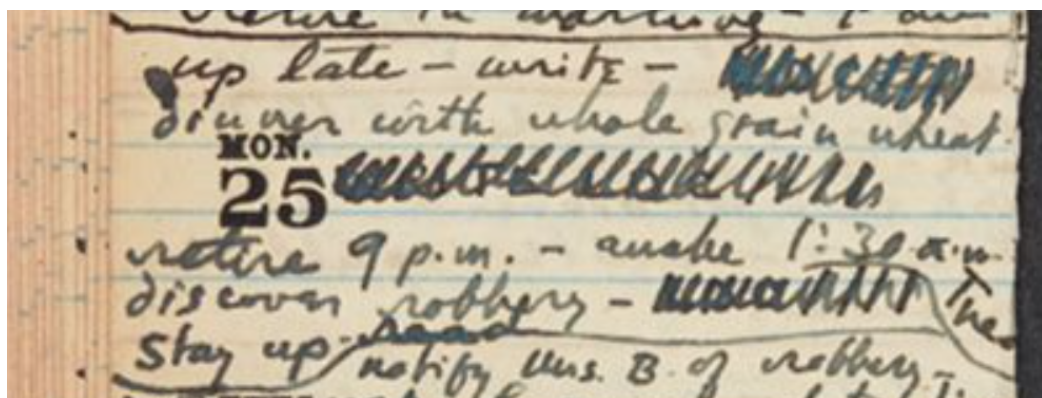 retire in morning - I am
up late - write -
dinner with whole grain wheat.
MON.
25
retire 9 p.m. - awake 1:30 a.m.
discover robbery -
Stay up.
notify Mrs. B. of robbery -